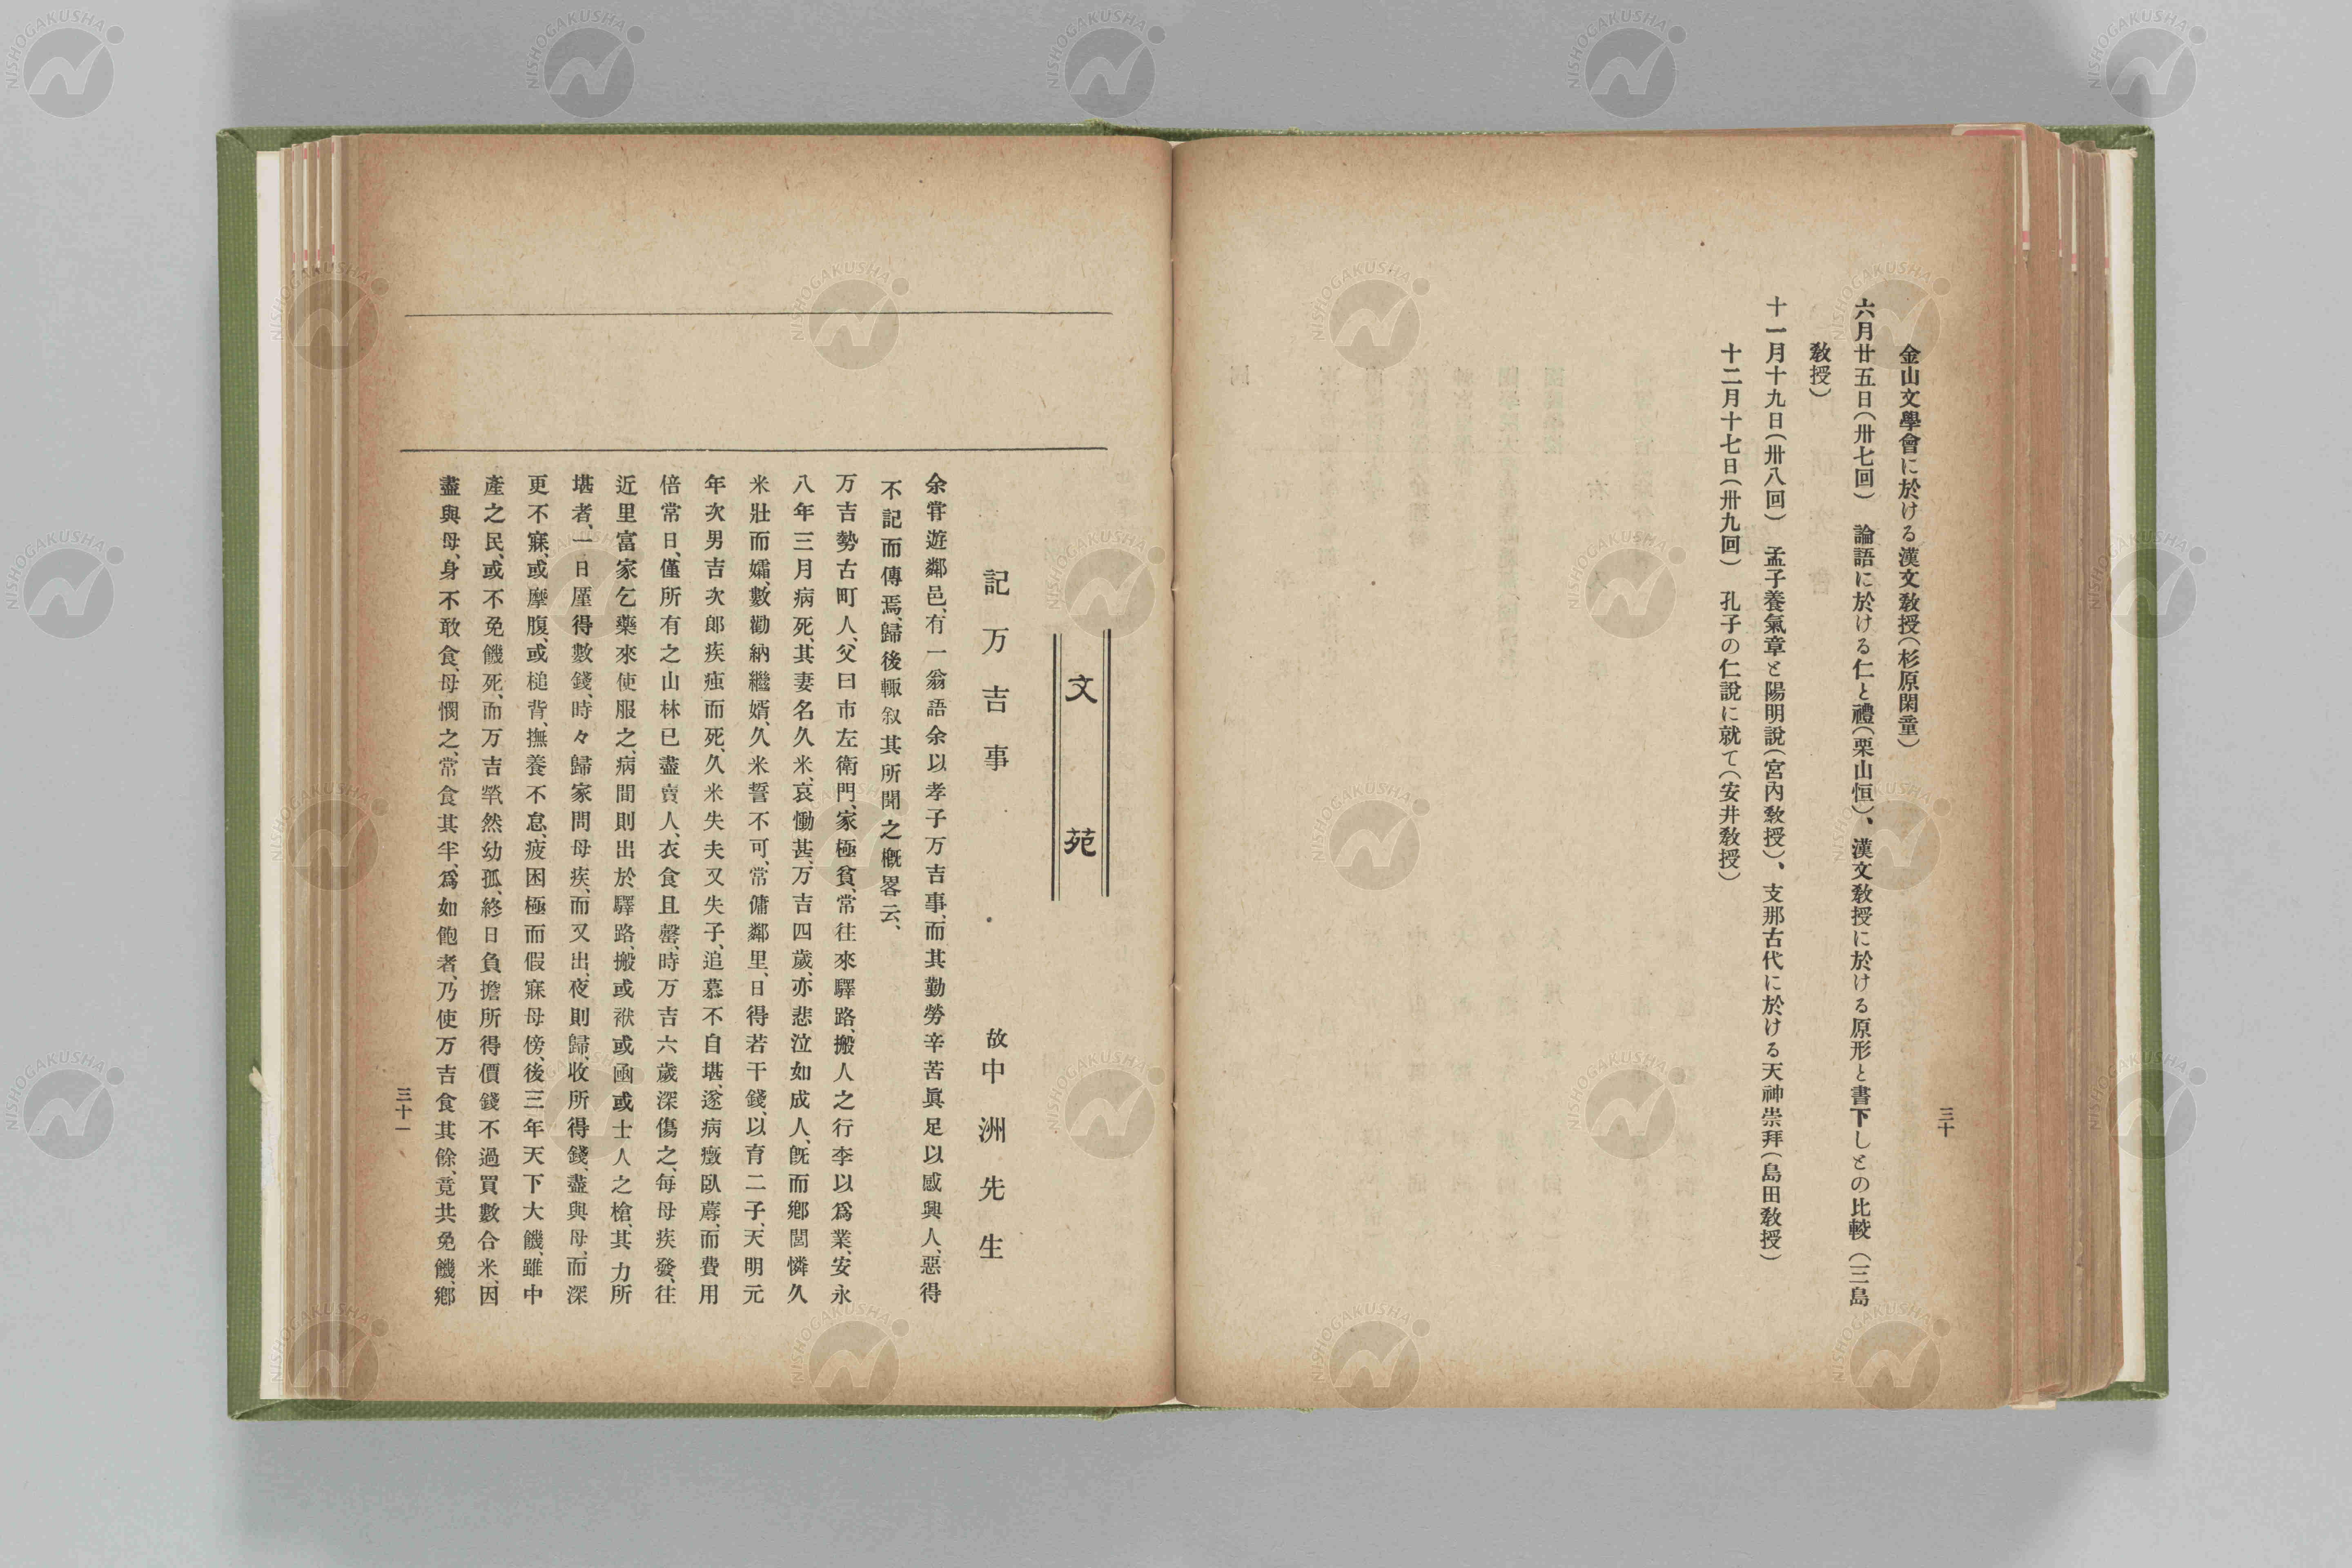 金山文學會に於ける漢文敎授(杉原閑童)
六月廿五日(卅七回) 論語に於ける仁と禮(栗山恒)、漢文敎授に於ける原形と書下しとの比較(三島
敎授)
十一月十九日(卅八回) 孟子養氣章と陽明說(宮內敎授)、支那古代に於ける天神崇拜(島田敎授)
十二月十七日(卅九回) 孔子の仁說に就て(安井敎授)
三十
文苑
記万吉事 故中洲先生
余甞遊鄰邑、有一翁語余以孝子万吉事、而其勤勞辛苦眞足以感興人、惡得
不記而傳焉、歸後輙叙其所聞之槪畧云、
万吉勢古町人、父曰市左衞門、家極貧、常往來驛路、搬人之行李以爲業、安永
八年三月病死、其妻名久米、哀慟甚、万吉四歲、亦悲泣如成人、旣而鄉閭憐久
米壯而孀、數勸納繼婿、久米誓不可、常傭鄰里、日得若干錢、以育二子、天明元
年次男吉次郎疾痘而死、久米失夫又失子、追慕不自堪、遂病癥臥蓐、而費用
倍常日、僅所有之山林已盡賣人、衣食且罄、時万吉六歲深傷之、每母疾發、往
近里富家乞藥來使服之、病間則出於驛路、搬或袱或凾或士人之槍、其力所
堪者、一日厪得數錢、時々歸家問母疾、而又出、夜則歸、收所得錢、盡與母、而深
更不寐、或摩腹、或槌背、撫養不怠、疲困極而假寐母傍、後三年天下大饑、雖中
產之民、或不免饑死、而万吉煢然幼孤、終日負擔所得價錢不過買數合米、因
盡與母、身不敢食、母憫之、常食其半、爲如飽者、乃使万吉食其餘、竟共免饑、鄉
三十一
NISHOGAKUSHA